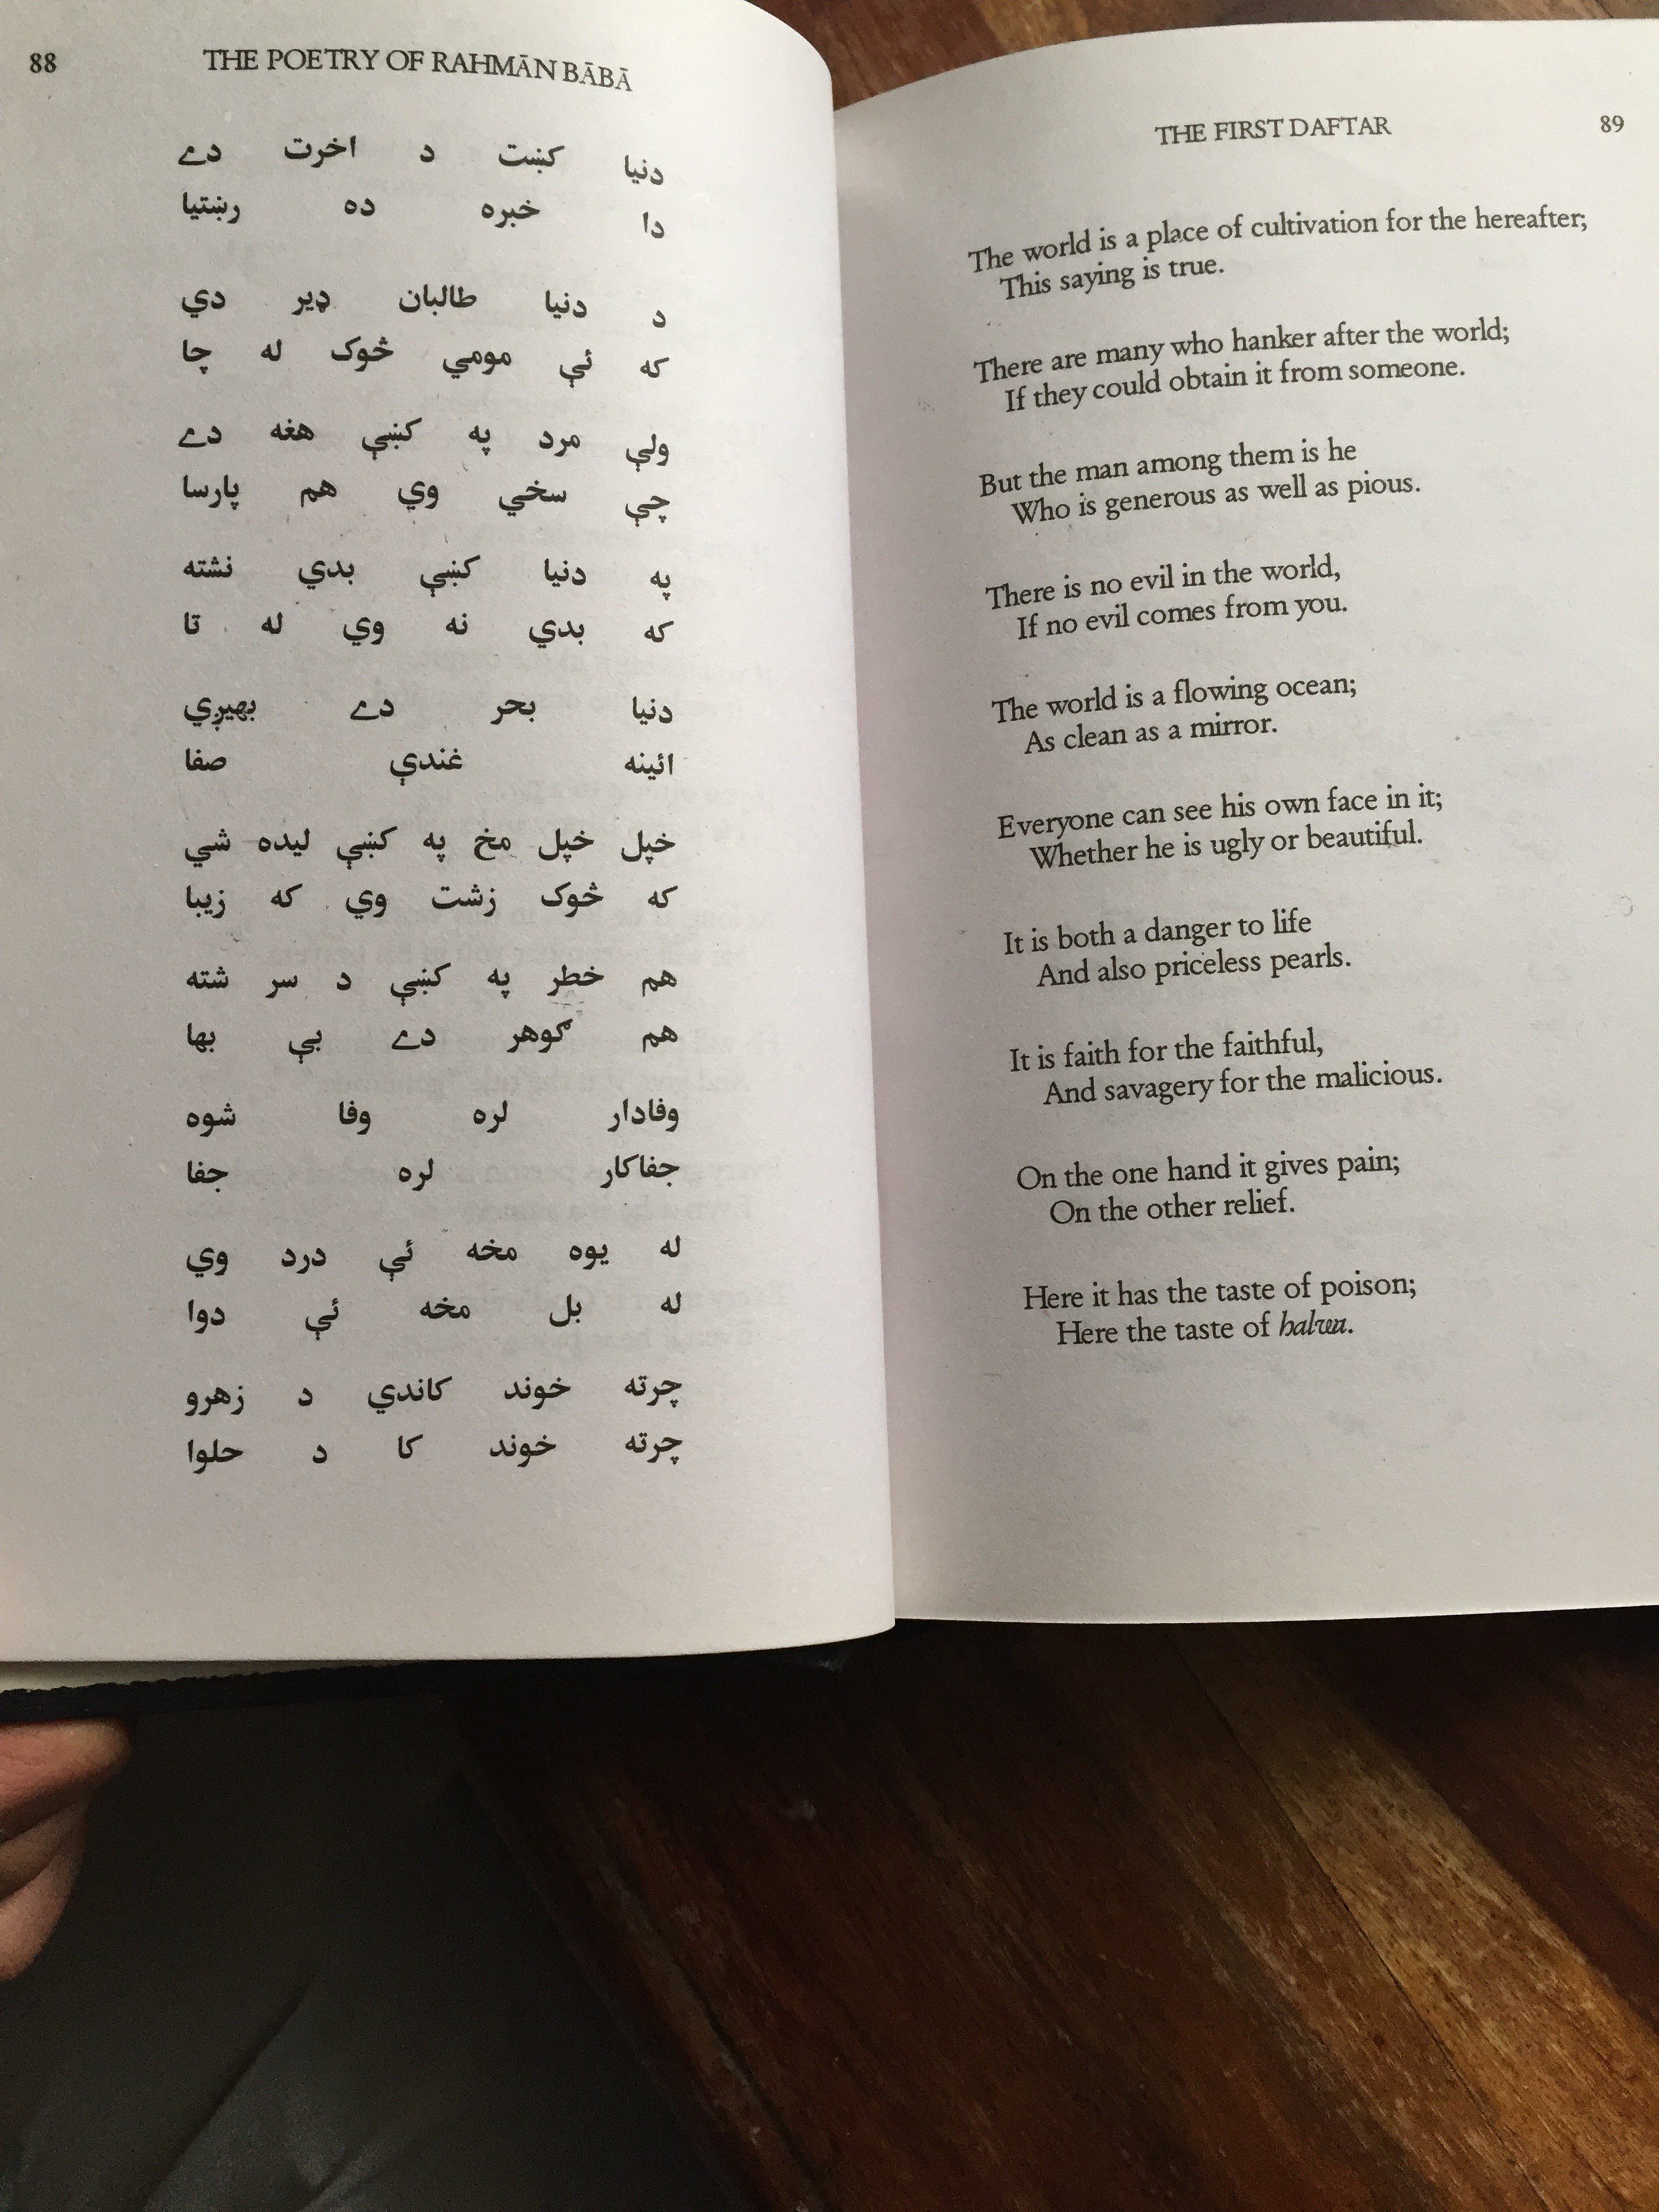 88
THE POETRY OF RAHMĀN BĀBĀ
دنيا کښت د اخرت دے
دا خبره ده رښتيا
د دنيا طالبان ډير دي
که ئې مومي څوک له چا
ولې مرد په کښې هغه دے
چې سخي وي هم پارسا
په دنيا کښې بدي نشته
که بدي نه وي له تا
دنيا بحر دے بهيږي
ائينه غندې صفا
خپل خپل مخ په کښې ليده شي
که څوک زشت وي که زيبا
هم خطر په کښې د سر شته
هم ګوهر دے بې بها
وفادار لره وفا شوه
جفاکار لره جفا
له يوه مخه ئې درد وي
له بل مخه ئې دوا
چرته خوند کاندي د زهرو
چرته خوند کا د حلوا
THE FIRST DAFTAR
89
The world is a place of cultivation for the hereafter;
This saying is true.
There are many who hanker after the world;
If they could obtain it from someone.
But the man among them is he
Who is generous as well as pious.
There is no evil in the world,
If no evil comes from you.
The world is a flowing ocean;
As clean as a mirror.
Everyone can see his own face in it;
Whether he is ugly or beautiful.
It is both a danger to life
And also priceless pearls.
It is faith for the faithful,
And savagery for the malicious.
On the one hand it gives pain;
On the other relief.
Here it has the taste of poison;
Here the taste of halwa.